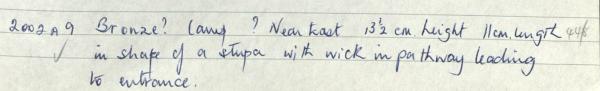 2002 A 9 Bronze? Lamp ? Near East 13½ cm. height 11 cm. length
✓ in shape of a stupa with wick in pathway leading
to entrance.